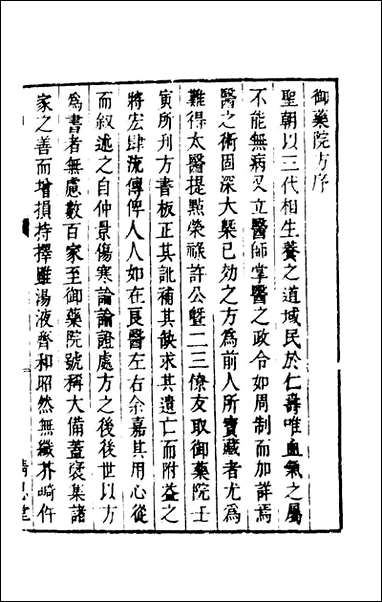 御藥院方序
聖朝以三代相生養之道域民於仁壽唯血氣之屬
不能無病又立醫師掌醫之政令如周制而加詳焉
醫之術固深大槩已効之方為前人所寶藏者尤為
難得太醫提點榮祿許公曁二三僚友取御藥院壬
寅所刋方書板正其訛補其缺求其遺亡而附益之
將宏肆流傳俾人人如在良醫左右余嘉其用心從
而叙述之自仲景傷寒論論證處方之後後世以方
為書者無慮數百家至御藥院號稱大備蓋裒集諸
家之善而增損持擇雖湯液齊和昭然無纖芥崎仵